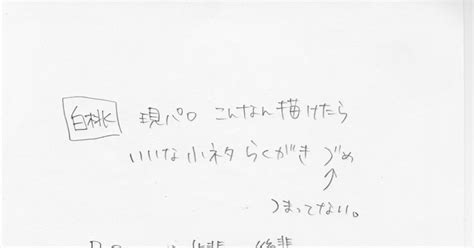 白桃 現パロ こんなん描けたら
いいな小ネタらくがきづめ
↑
つまってない。